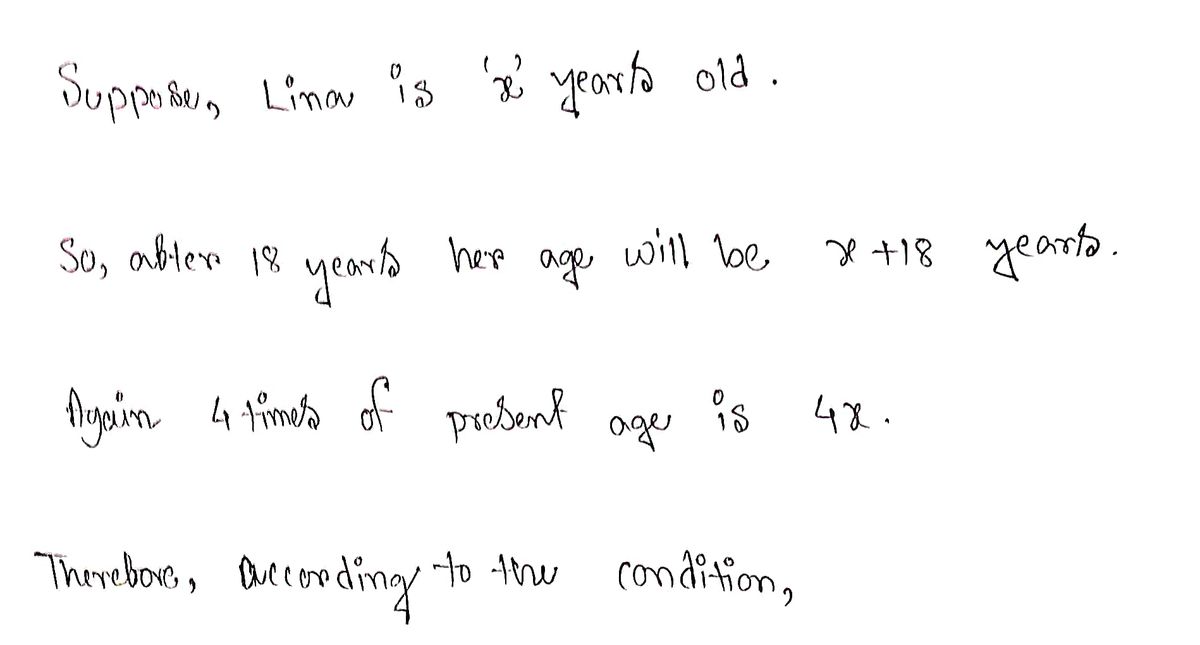 Suppose, Lina is 'x' years old.
So, after 18 years her age will be x+18 years.
Again 4 times of present age is 4x.
Therefore, according to the condition,